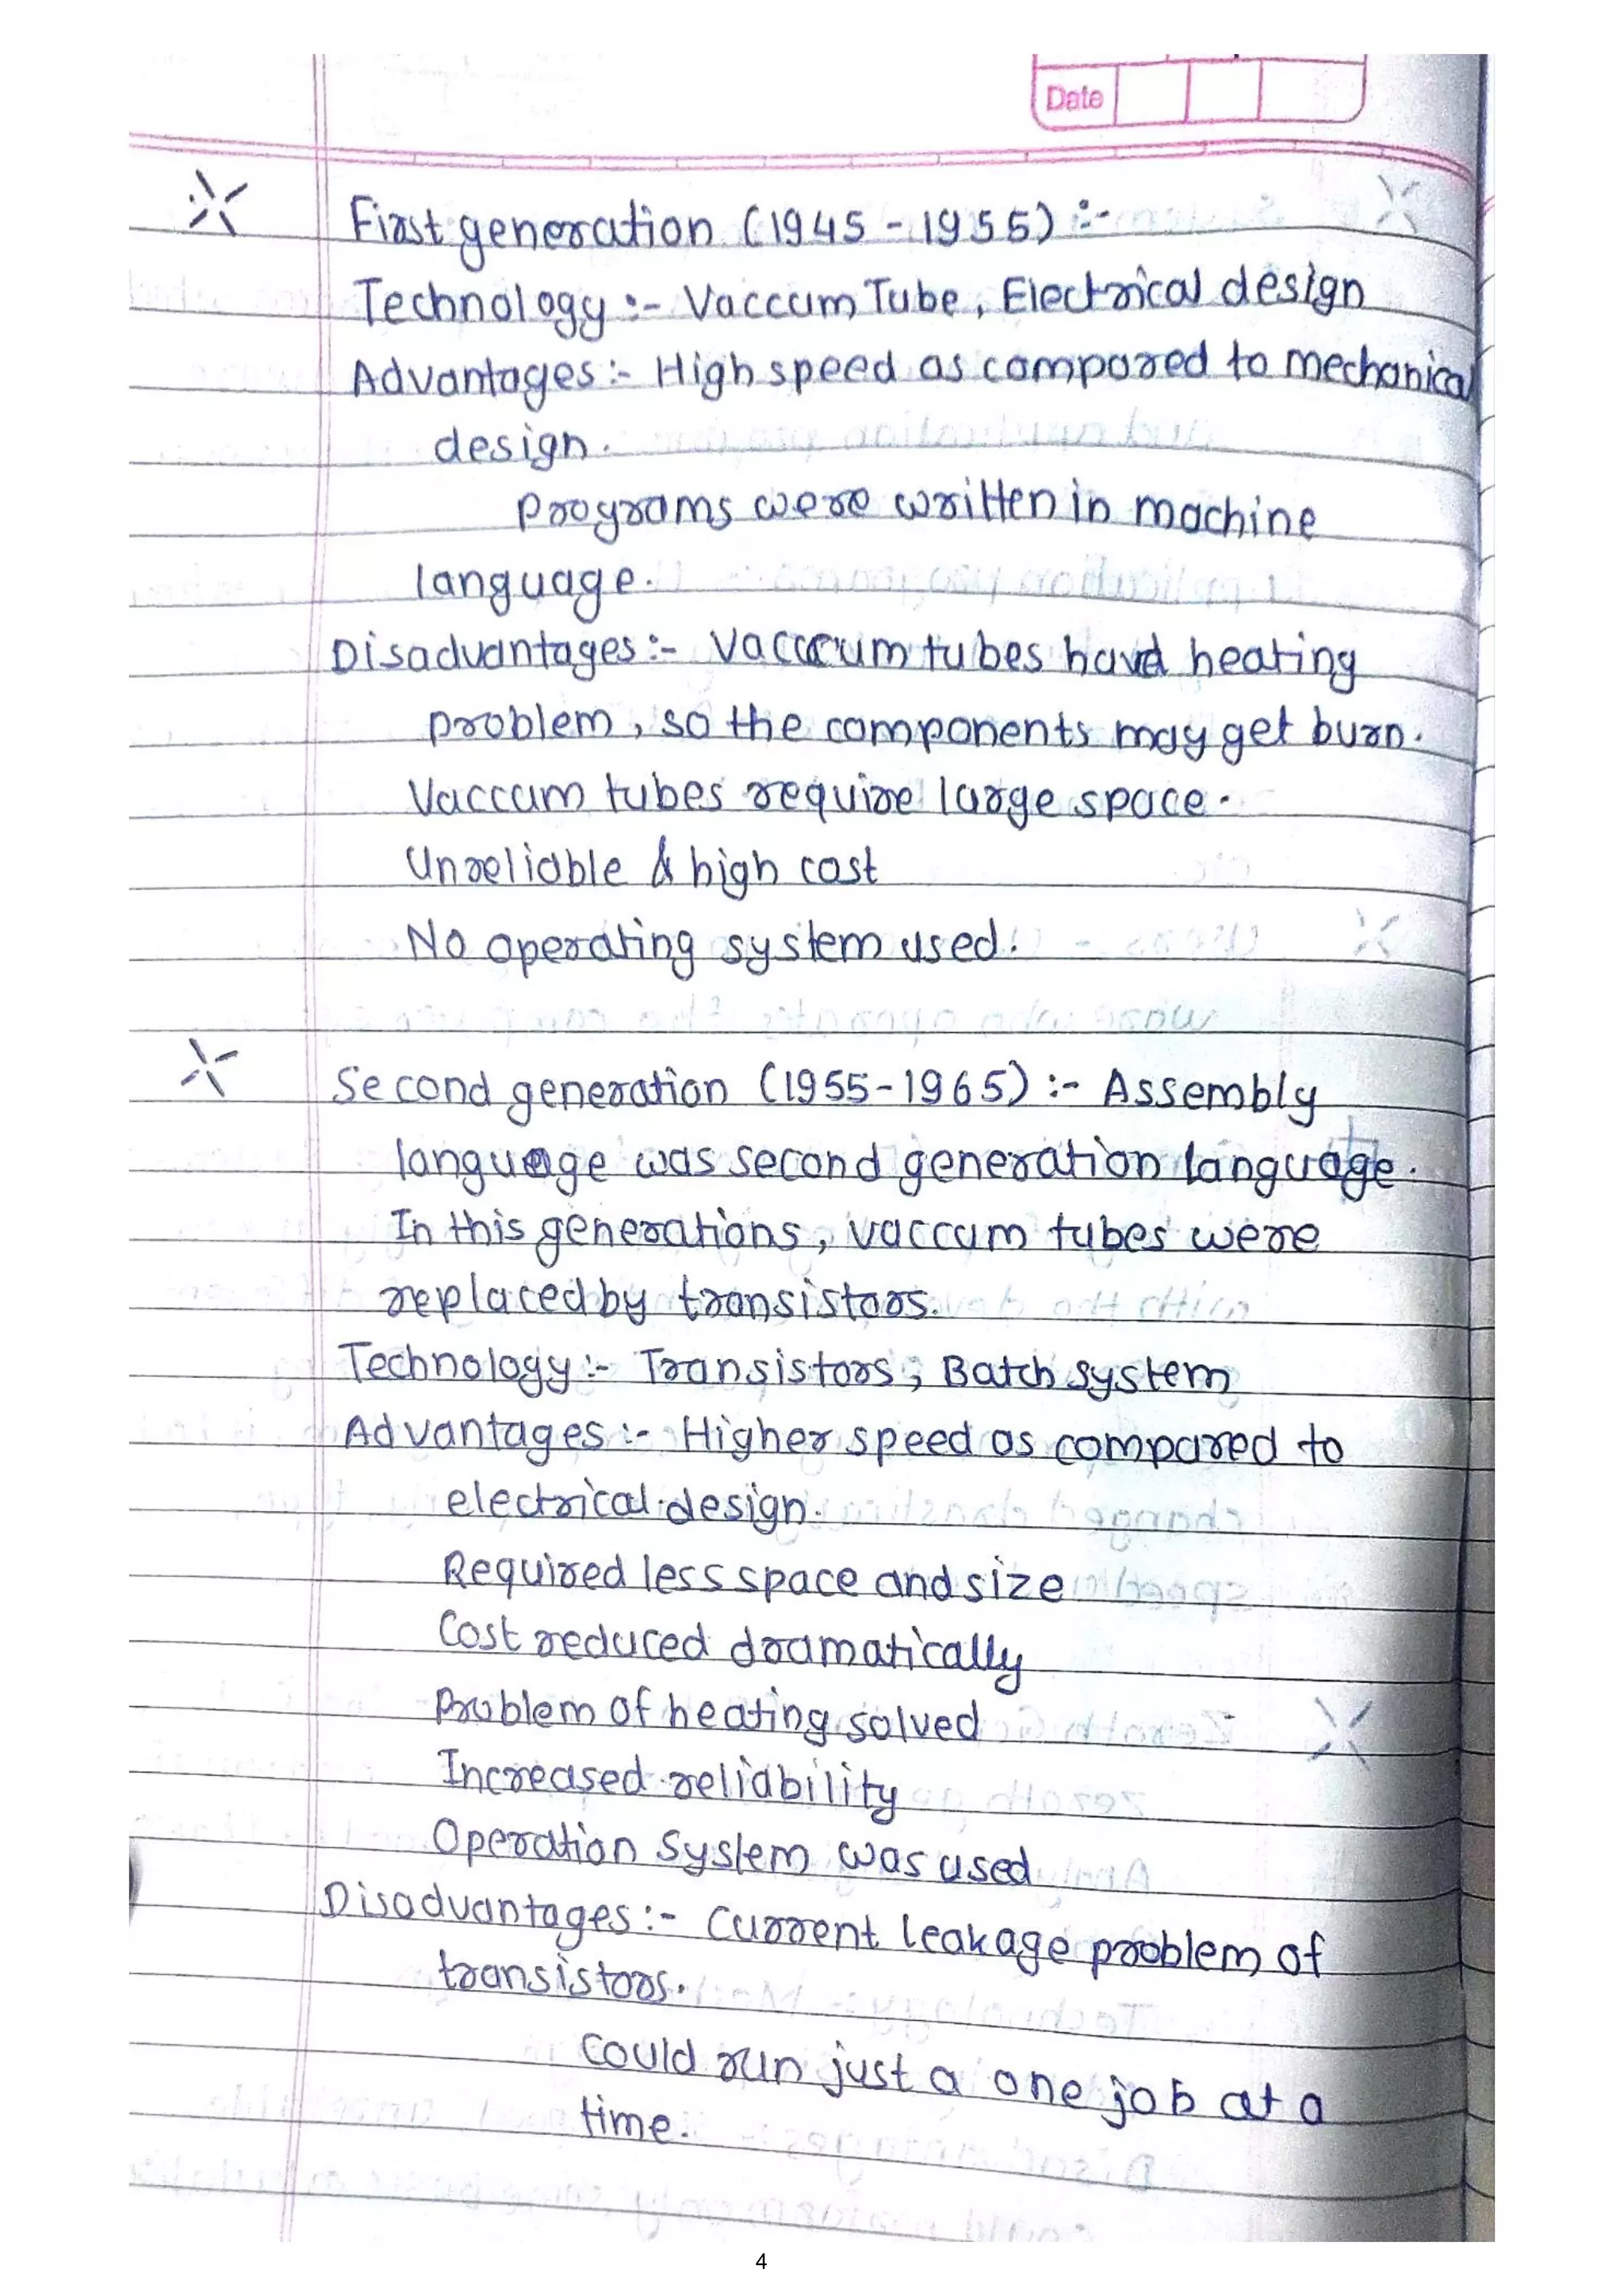 Date
First generation (1945 - 1955) :-
Technology :- Vaccum Tube, Electrical design
Advantages :- High speed as compared to mechanical
design.
Programs were written in machine
language.
Disadvantages :- Vaccum tubes have heating
problem, so the components may get burn.
Vaccum tubes require large space.
Unreliable & high cost
No operating system used.
Second generation (1955-1965) :- Assembly
language was second generation language.
In this generations, vaccum tubes were
replaced by transistors.
Technology :- Transistors, Batch system
Advantages :- Higher speed as compared to
electrical design.
Required less space and size
Cost reduced dramatically
Problem of heating solved
Increased reliability
Operation System was used
Disadvantages :- Current leakage problem of
transistors.
Could run just a one job at a
time.
4